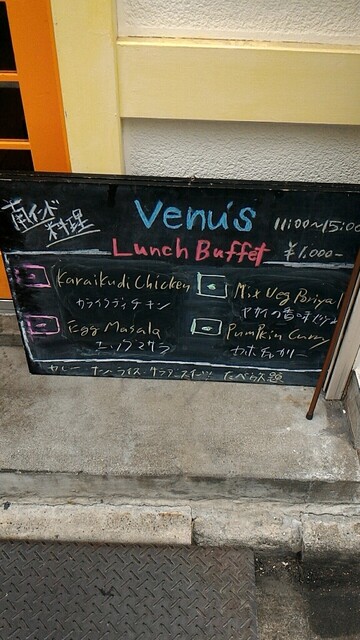 南インド料理
Venu's 11:00~15:00
Lunch Buffet ¥1,000-
Karaikudi Chicken
カライクディチキン
Mix Veg Poriyal
Egg Masala
エッグマサラ
Pumpkin Curry
カボチャカリー
カレー・ナン・ライス・サラダ・スイーツ たべ放題